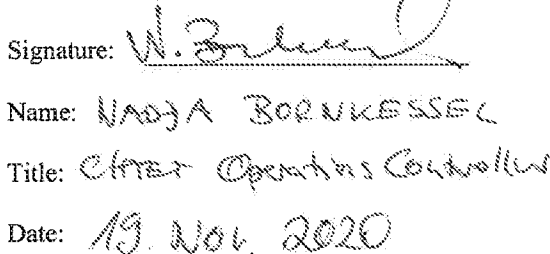 Signature: N. Bornkessel
Name: NADJA BORNKESSEL
Title: CHIEF Operations Controller
Date: 19. Nov. 2020